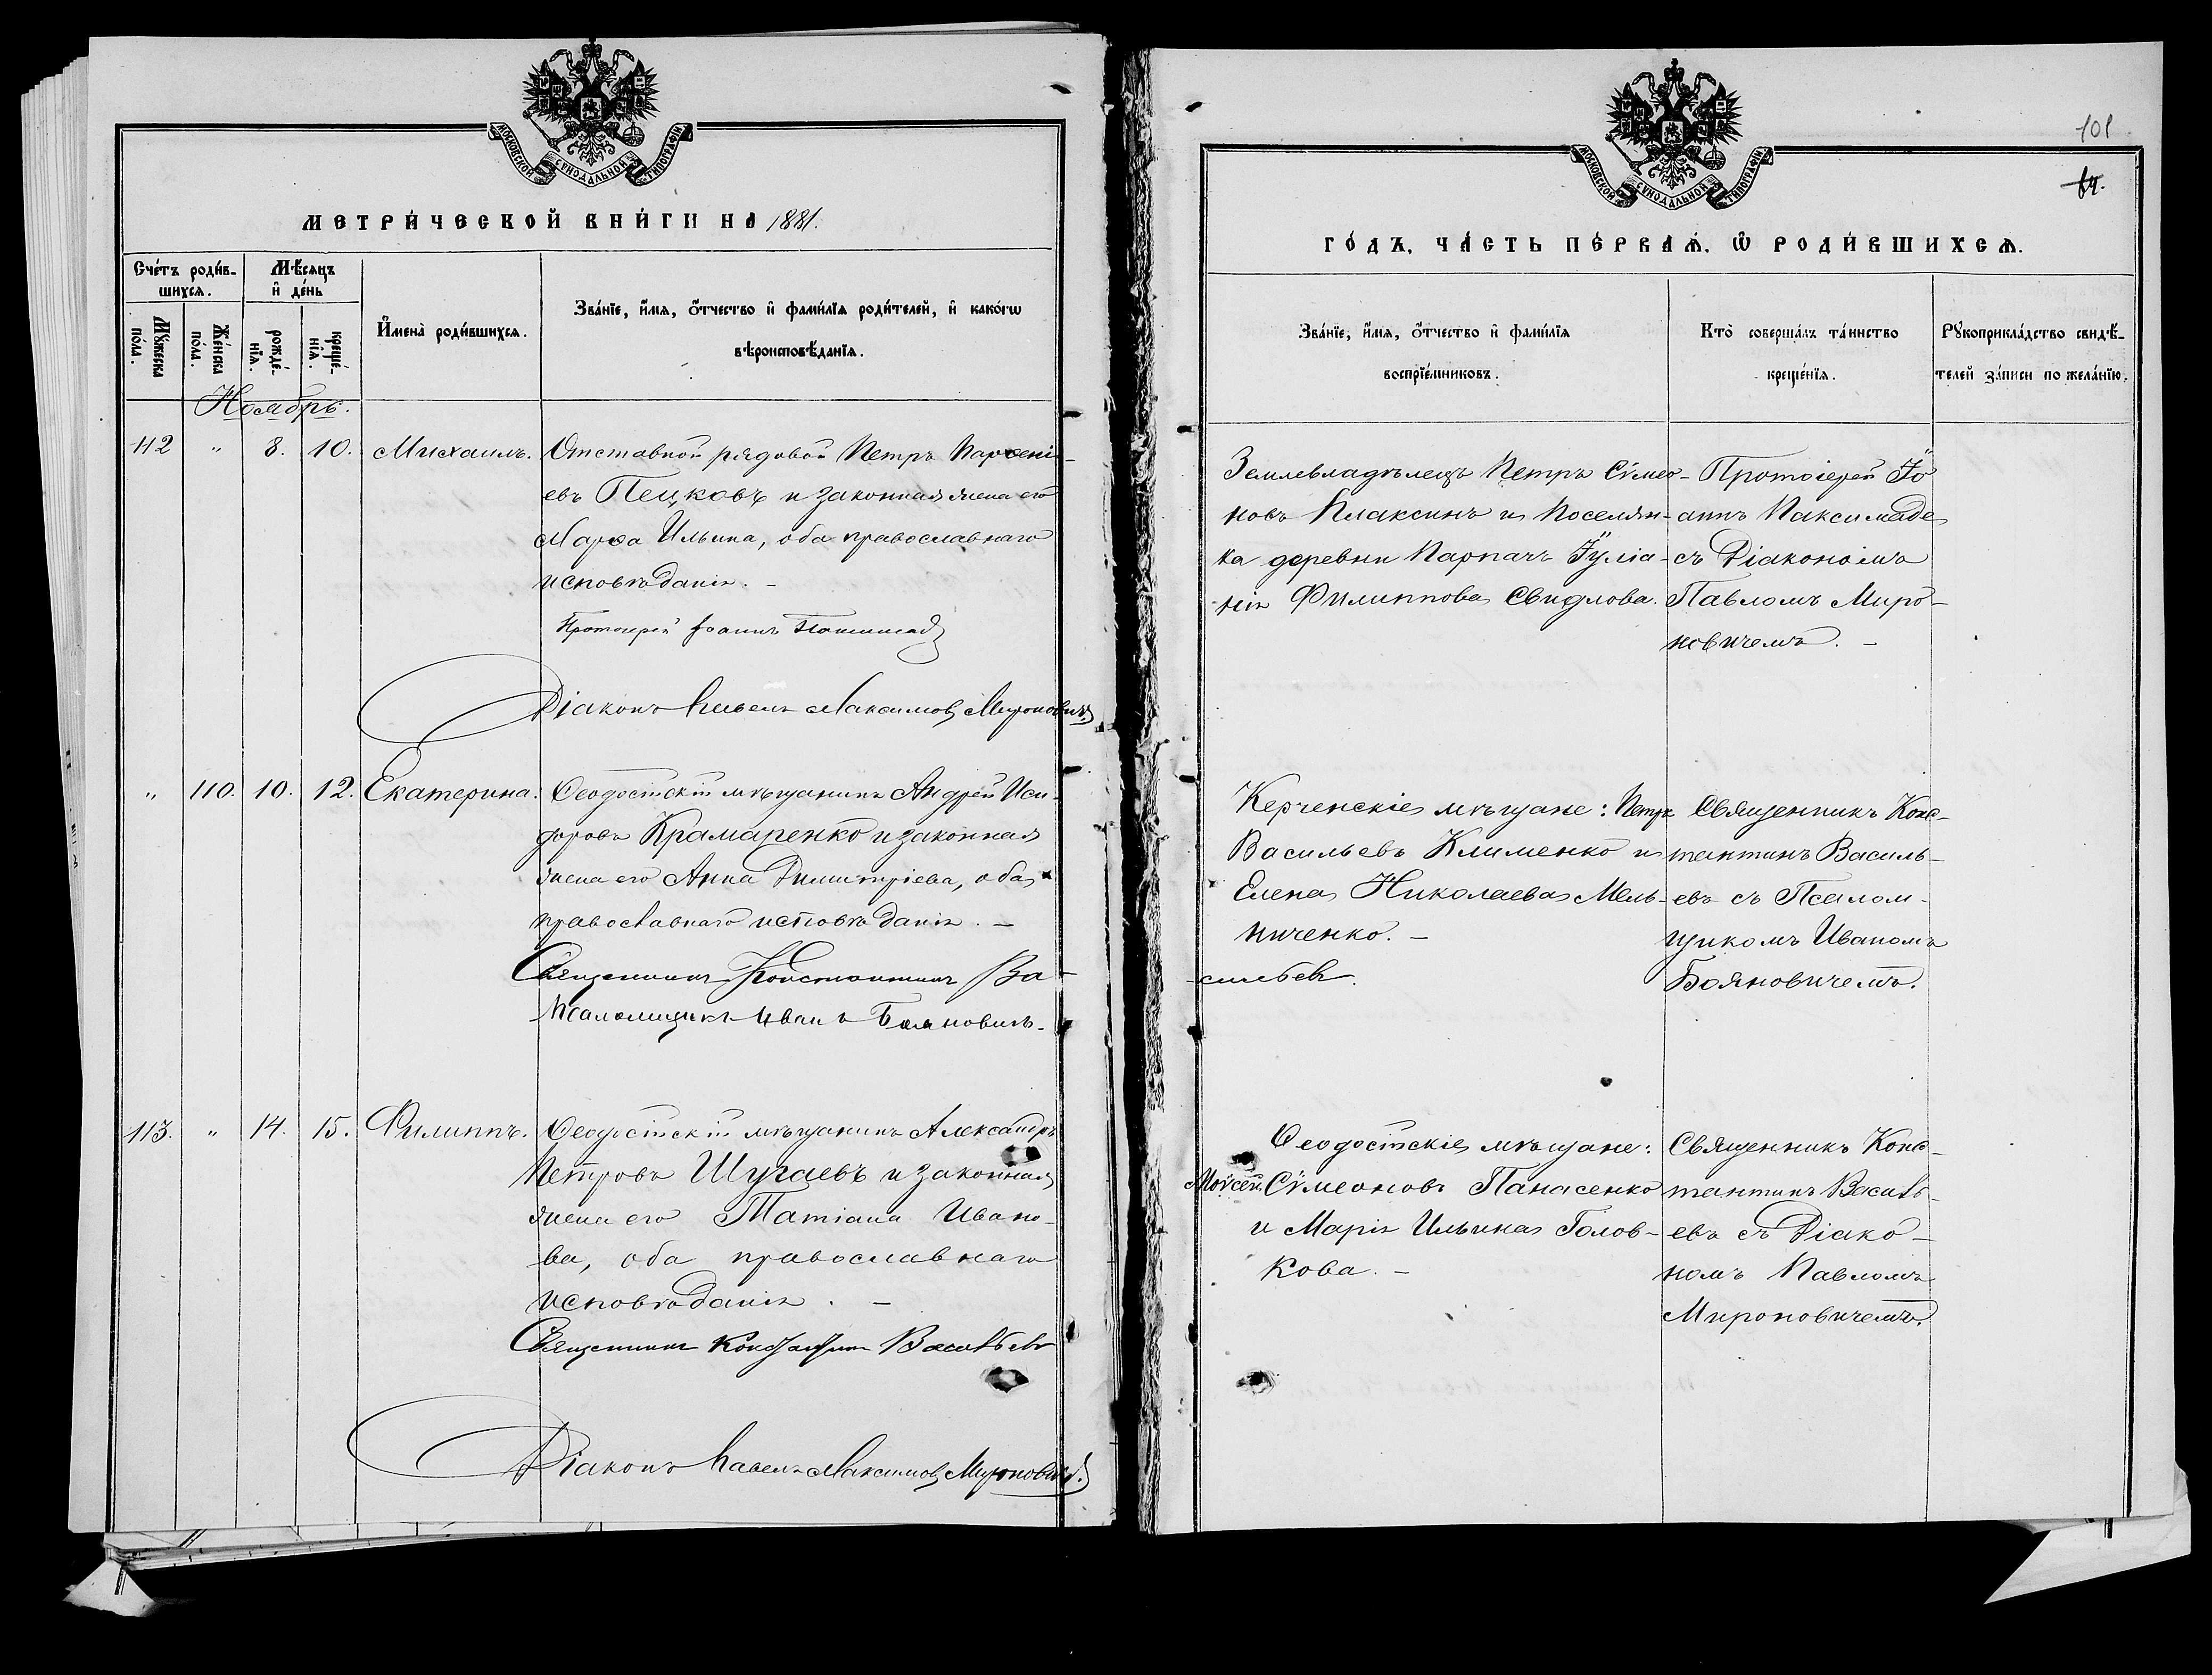 МОСКОВСКОЙ СѴНОДАЛЬНОЙ ТИПОГРАФІИ
МЕТРИ́ЧЕСКОЙ КНИ́ГИ НА 1881.
Сче́тъ роди́в-
шихсѧ.
Мѣ́сѧцъ
и҆ де́нь
Мꙋ́жеска
по́ла.
Же́нска
по́ла.
рожде́-
нїѧ.
креще́-
нїѧ.
И҆мена̀ роди́вшихсѧ.
Зва́нїе, и҆́мѧ, ѻ҆́тчество и҆ фами́лїѧ роди́телей, и҆ како́гѡ
вѣроисповѣ́данїѧ.
Ноябрь.
112 „ 8. 10. Михаилъ. Отставной рядовой Петръ Парѳені-
евъ Пецковъ и законная жена его
Марѳа Ильина, оба православнаго
исповѣданія. –
Протоіерей Іоаннъ
Діаконъ Павелъ Максимовъ Мироновичъ
„ 110. 10. 12. Екатерина. Ѳеодосійскій мѣщанинъ Андрей Иси-
доровъ Крамаренко и законная
жена его Анна Димитріева, оба
православнаго исповѣданія. –
Священникъ Константинъ Ва-
Псаломщикъ Иванъ Бояновичъ.
113. „ 14. 15. Филиппъ. Ѳеодосійскій мѣщанинъ Александръ
Петровъ Шугаевъ и законная
жена его Татіана Ивано-
ва, оба православнаго
исповѣданія. –
Священникъ Константинъ Васильевъ
Діаконъ Павелъ Максимовъ Мироновичъ.
МОСКОВСКОЙ СѴНОДАЛЬНОЙ ТИПОГРАФІИ
101
ГО́ДЪ, ЧА́СТЬ ПЕ́РВАѦ, Ѡ҆ РОДИ́ВШИХСѦ.
Зва́нїе, и҆́мѧ, ѻ҆́тчество и҆ фами́лїѧ
воспрїе́мниковъ.
Кто̀ соверша́лъ та́инство
креще́нїѧ.
Рꙋкоприкла́дство свидѣ́-
телей за́писи по жела́нїю.
Землевладѣлецъ Петръ Сѵмео-
новъ Плаксинъ и Поселян-
ка деревни Парпачъ Іуліа-
нія Филиппова Свидлова.
Протоіерей Іо
аннъ Максимаде
съ Діакономъ
Павломъ Миро-
новичемъ. –
Керченскіе мѣщане: Петръ
Васильевъ Клименко и
Елена Николаева Мель-
ниченко. –
сильевъ.
Священникъ Конс-
тантинъ Василь-
евъ съ Псалом-
щикомъ Иваномъ
Бояновичемъ.
Ѳеодосійскіе мѣщане:
Моѵсей Сѵмеоновъ Панасенко
и Марія Ильина Голов-
кова. –
Священникъ Конс-
тантинъ Василь-
евъ съ Діако-
номъ Павломъ
Мироновичемъ.